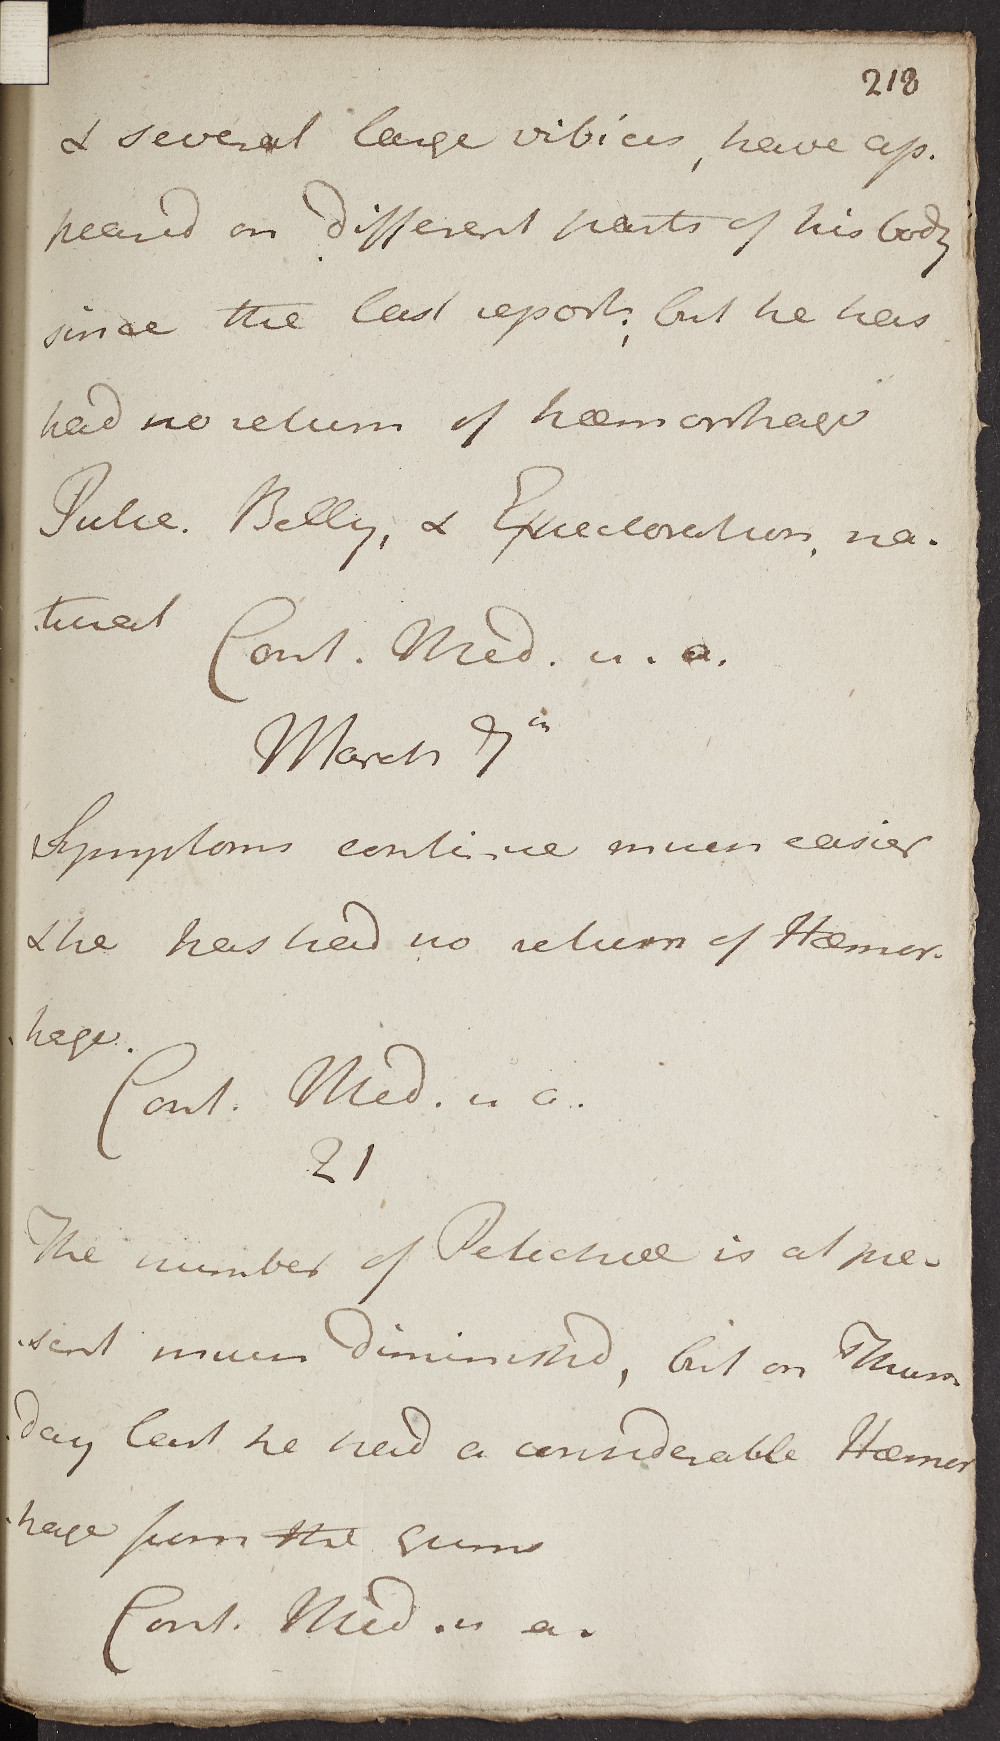 218
& several large vibices, have ap.
peared on different parts of his body
since the last report; but he has
had no return of hæmorrhage
Pulse. Belly, & Expectoration, na.
tural
Cont. Med. u. a.
March 7th
Symptoms continue much easier
& he has had no return of Hæmor.
hage.
Cont. Med. u a.
21
The number of Petechiæ is at pre-
sent much diminishd, but on Thurs
day last he had a considerable Hæmor
hage from the Gums
Cont. Med. u a.